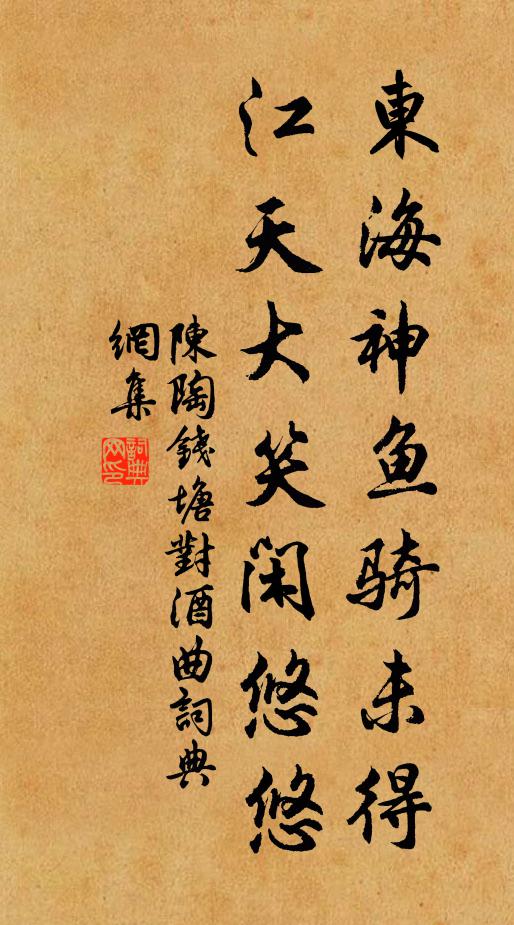 東海神鱼骑未得
江天大笑闲悠悠
陳陶錢塘對酒曲詞典
網集
詞典
网印